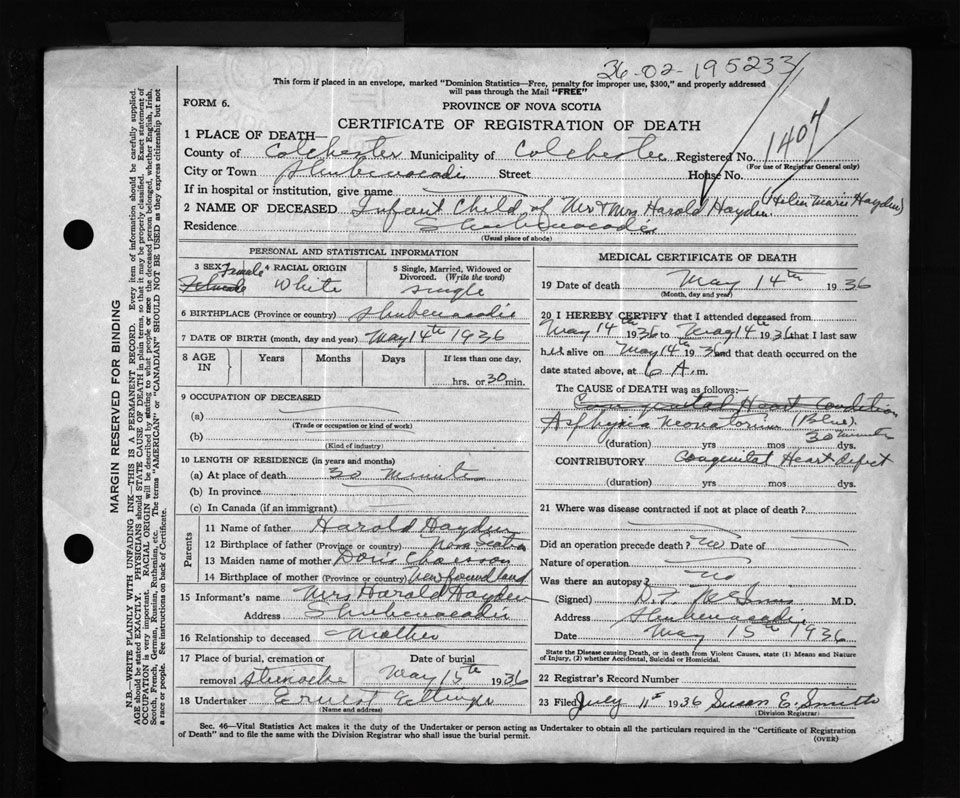 36-02-195233
This form if placed in an envelope, marked "Dominion Statistics—Free, penalty for improper use, $300," and properly addressed
will pass through the Mail "FREE"
FORM 6.
PROVINCE OF NOVA SCOTIA
CERTIFICATE OF REGISTRATION OF DEATH
1407
1 PLACE OF DEATH—
County of Colchester Municipality of Colchester Registered No.
(For use of Registrar General only)
City or Town Shubenacadie Street House No.
If in hospital or institution, give name
(Helen Marie Hayden)
2 NAME OF DECEASED Infant Child of Mr & Mrs. Harold Hayden
Residence Shubenacadie
(Usual place of abode)
PERSONAL AND STATISTICAL INFORMATION
3 SEX Female 4 RACIAL ORIGIN White 5 Single, Married, Widowed or Divorced. (Write the word) single
6 BIRTHPLACE (Province or country) Shubenacadie
7 DATE OF BIRTH (month, day and year) May 14th 1936
8 AGE IN Years Months Days If less than one day, hrs. or 30 min.
9 OCCUPATION OF DECEASED
(a)
(Trade or occupation or kind of work)
(b)
(Kind of industry)
10 LENGTH OF RESIDENCE (in years and months)
(a) At place of death 30 minutes
(b) In province
(c) In Canada (if an immigrant)
Parents
11 Name of father Harold Hayden
12 Birthplace of father (Province or country) Nova Scotia
13 Maiden name of mother Doris
14 Birthplace of mother (Province or country) Newfoundland
15 Informant's name Mrs Harold Hayden
Address Shubenacadie
16 Relationship to deceased Mother
17 Place of burial, cremation or removal Date of burial May 15th 1936
18 Undertaker Ernest
(Name and address)
MEDICAL CERTIFICATE OF DEATH
19 Date of death May 14th 1936
(Month, day and year)
20 I HEREBY CERTIFY that I attended deceased from
May 14th 1936 to May 14th 1936 that I last saw
h alive on May 14th 1936 and that death occurred on the
date stated above, at 6 A.m.
The CAUSE OF DEATH was as follows:—
Congenital Heart Condition
Asphyxia Neonatorum (Blue).
30 minutes
(duration) yrs mos dys.
CONTRIBUTORY Congenital Heart Defect
(duration) yrs mos dys.
21 Where was disease contracted if not at place of death?
Did an operation precede death? No Date of
Nature of operation
Was there an autopsy? No
(Signed) D.F. McInnis M.D.
Address Shubenacadie
Date May 15th 1936
State the Disease causing Death, or in death from Violent Causes, state (1) Means and Nature of Injury, (2) whether Accidental, Suicidal or Homicidal.
22 Registrar's Record Number
23 Filed July 11th 1936 Susan E. Smith
(Division Registrar)
Sec. 46—Vital Statistics Act makes it the duty of the Undertaker or Person acting as Undertaker to obtain all the particulars required in the "Certificate of Registration
of Death" and to file the same with the Division Registrar who shall issue the burial permit.
(OVER)
MARGIN RESERVED FOR BINDING
N.B.—WRITE PLAINLY WITH UNFADING INK—THIS IS A PERMANENT RECORD. Every item of information should be carefully supplied.
AGE should be stated EXACTLY. PHYSICIANS should STATE CAUSE OF DEATH in plain terms, so that it may be properly classified. Exact statement of
OCCUPATION is very important. RACIAL ORIGIN will be described by stating to what people or race the deceased person belonged, whether English, Irish,
Scotch, French, German, Russian, Ruthenian, etc. The terms "AMERICAN" or "CANADIAN" SHOULD NOT BE USED as they express citizenship but not
a race or people. See instructions on back of Certificate.